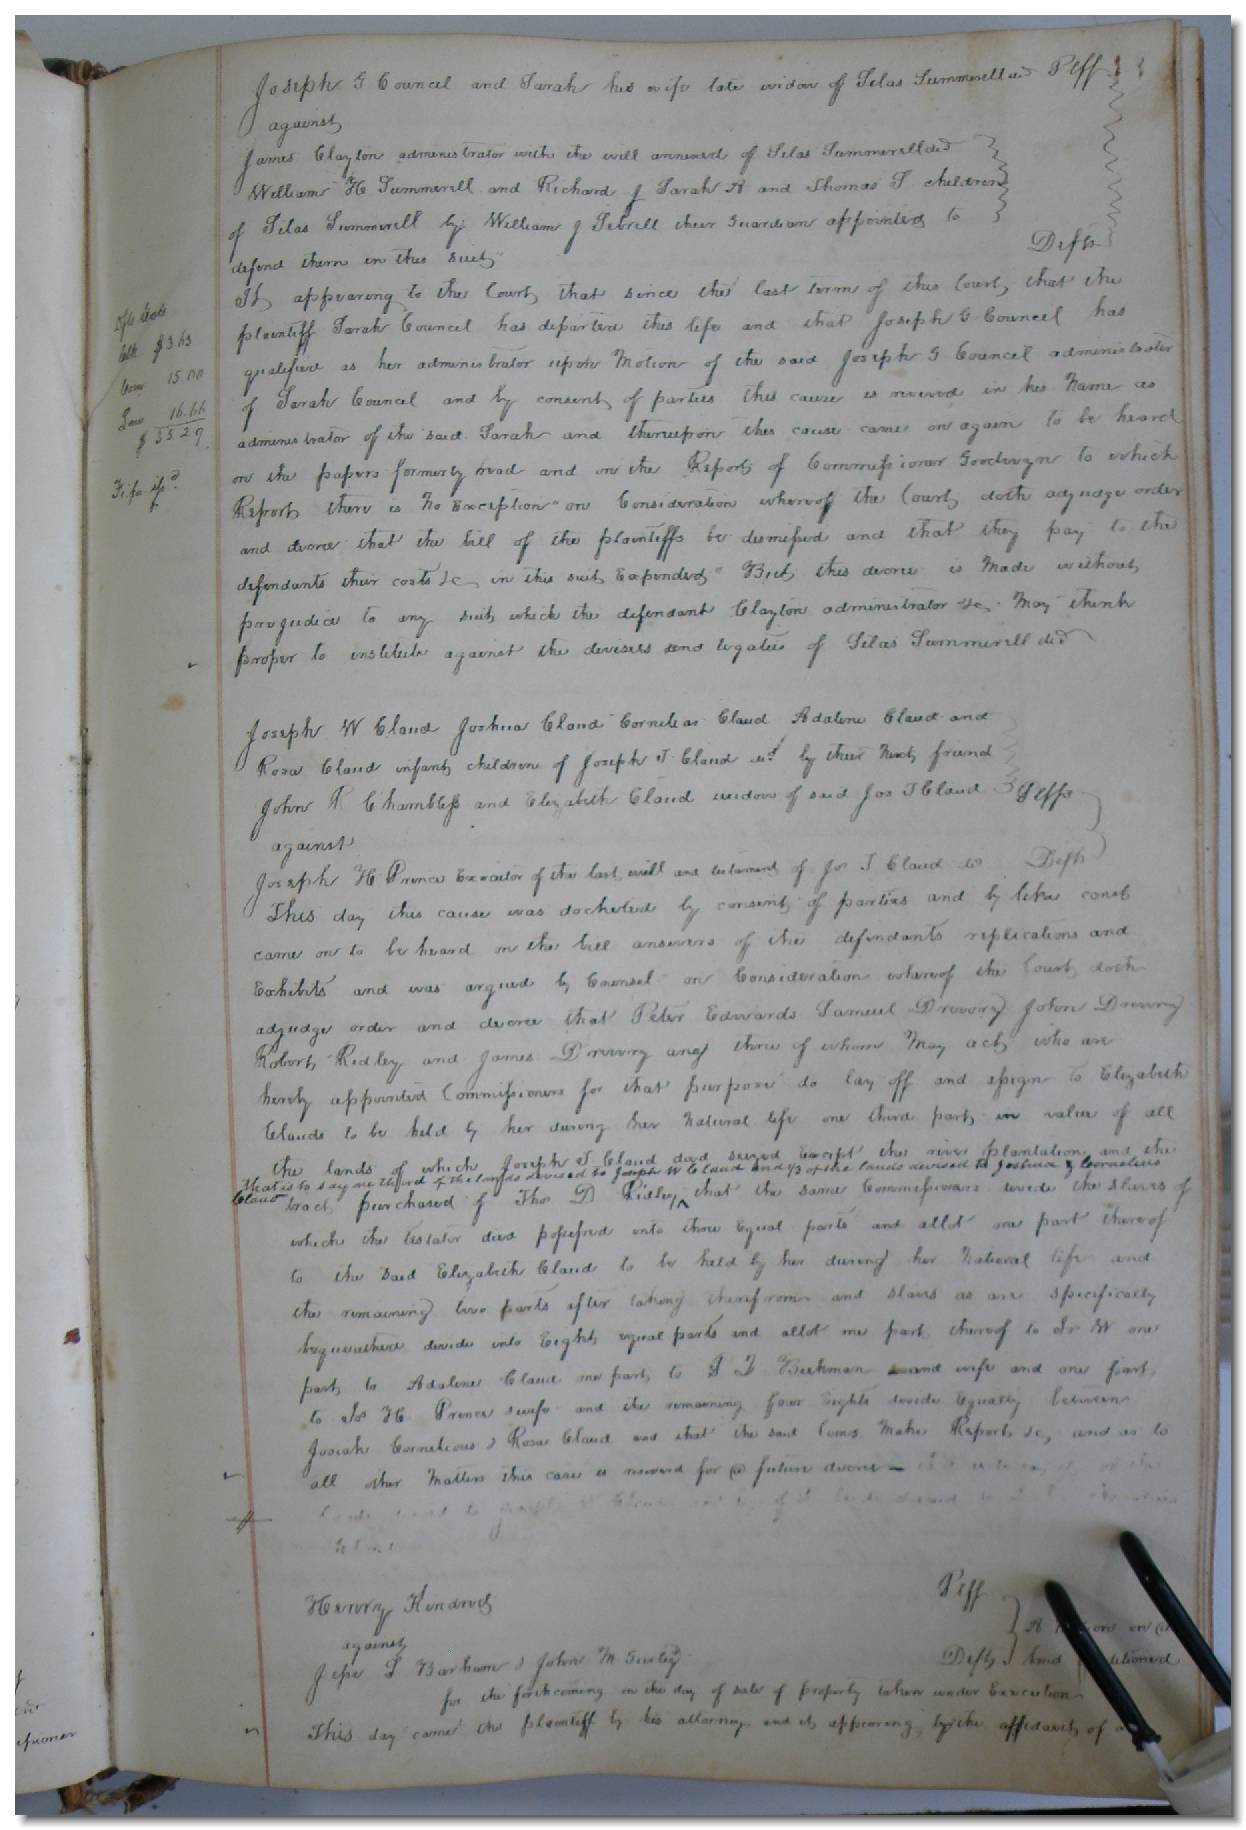 Joseph G Council and Sarah his wife late widow of Silas Summerell decd Plff
against
James Clayton administrator with the will annexed of Silas Summerell decd
William H Summerell and Richard J Sarah A and Thomas S children
of Silas Summerell by William J Sebrell their Guardian appointed to
defend them in this suit
Defts
It appearing to the Court that since the last term of this Court that the
plaintiff Sarah Council has departed this life and that Joseph G Council has
qualified as her administrator upon Motion of the said Joseph G Council administrator
of Sarah Council and by consent of parties this cause is revived in his Name as
administrator of the said Sarah and thereupon this cause came on again to be heard
on the papers formerly read and on the Report of Commissioner Goodwyn to which
Report there is No Exception on Consideration whereof the Court doth adjudge order
and decree that the bill of the plaintiffs be dismissed and that they pay to the
defendants their costs &c in this suit Expended But this decree is Made without
prejudice to any suit which the defendant Clayton administrator &c May think
proper to institute against the devisees and legatees of Silas Summerell decd
Dfts Costs
Clk $3.63
Com 15.00
Law 16.66
$35.29
Fi fa isd
Joseph W Claud Joshua Claud Cornelias Claud Adaline Claud and
Rosa Claud infant children of Joseph T Claud decd by their Next friend
John R Chambless and Elizabeth Claud widow of said Jos T Claud Plffs
against
Joseph H Prince Executor of the last will and testament of Jos T Claud Deft
This day this cause was docketed by consent of parties and by like const
came on to be heard on the bill answers of the defendants replications and
Exhibits and was argued by Counsel on Consideration whereof the Court doth
adjudge order and decree that Peter Edwards Samuel Drewry John Drewry
Robert Ridley and James Drewry any three of whom May act who are
hereby appointed Commissioners for that purpose do lay off and assign to Elizabeth
Claud to be held by her during her Natural life one third part in value of all
the lands of which Joseph T Claud died seized Except the river plantation and the
that is to say one third of the lands devised to Joseph W Claud and 1/3 of the lands devised to Joshua & Cornelius
Claud
tract purchased of Thos D Ridley, that the same Commissioners divide the slaves of
which the testator died possessed into three Equal parts and allot one part thereof
to the said Elizabeth Claud to be held by her during her Natural life and
the remaining two parts after taking therefrom and slaves as are specifically
bequeathed divide into Eight equal parts and allot one part thereof to Jo W one
part to Adaline Claud one part to Beckman and wife and one part
to Jo H Prince & wife and the remaining four Eights divide Equally between
Josiah Cornelious & Rosa Claud and that the said Coms Make Report &c, and as to
all other Matters this case is reserved for a future decree
Henry Kindred Plff
against
Jesse S Barham & John M Gurley Defts
for the forthcoming on the day of sale of property taken under Execution
This day came the plaintiff by his attorney and it appearing by the affidavit of